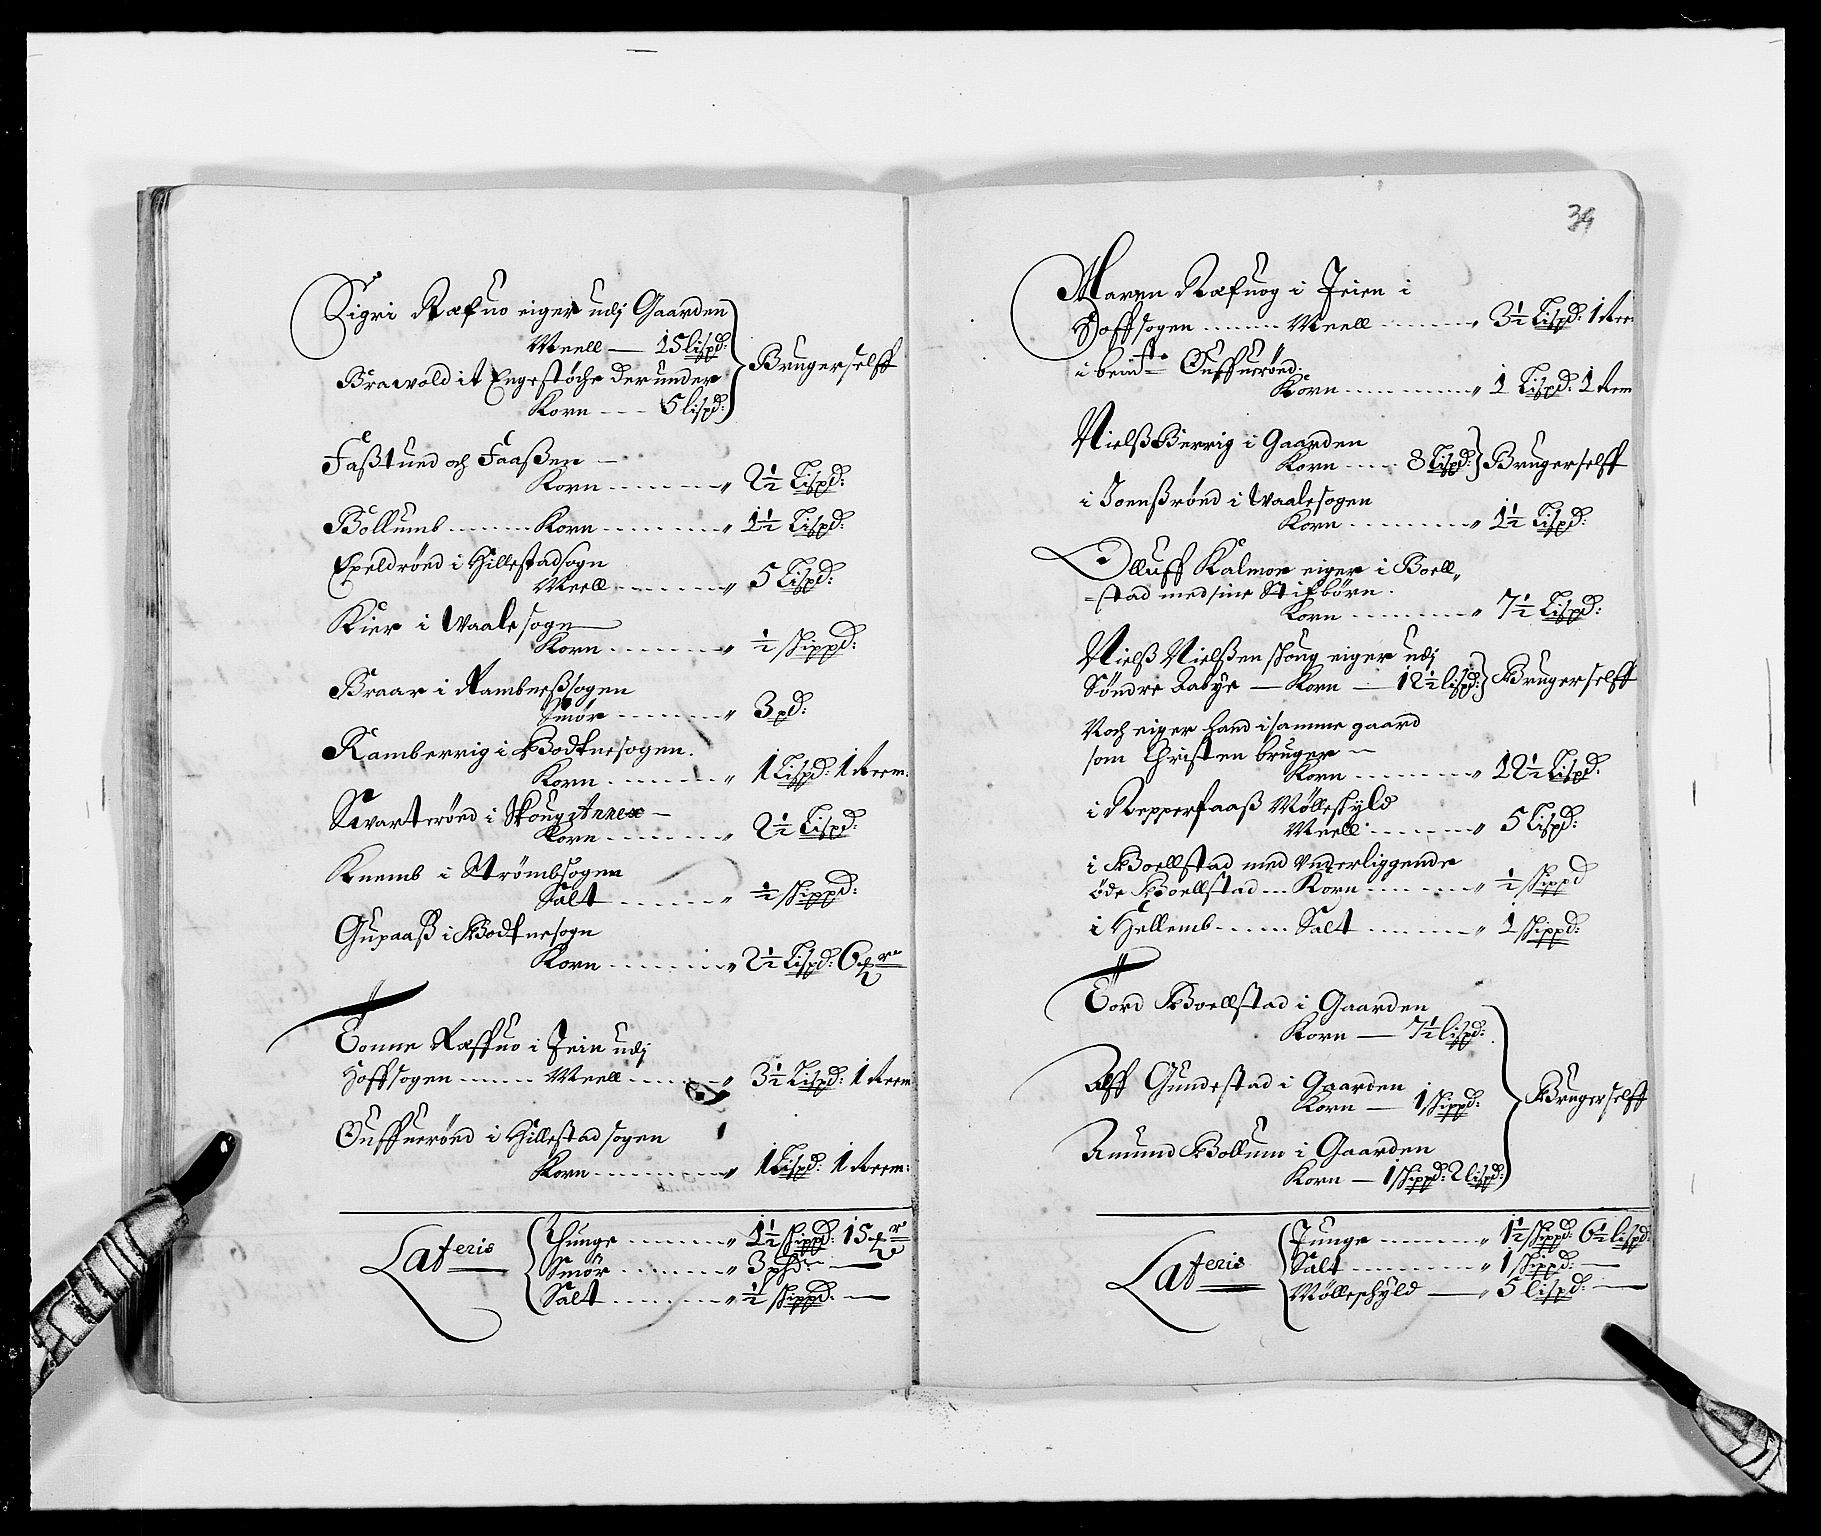 Sigri Ræfuo eiger udj Gaarden
Meell — 15 lispd:
Brawold it Engestøche derunder
Korn --- 5 lispd:
Brugerselff
Faßtued och Faaßen —
Korn ........ „ 2½ Lispd:
Bollumb ....... Korn ........ „ 1½ Lispd:
Expeldrønd i Hillestadsogn
Meell ........ „ 5 Lispd:
Kier i Waalesogn
Korn ........ „ ½ skippd:
Braar i Ramberßsogen
Smør ........ „ 3 pd:
Ramberrig i Bodtnesogen.
Korn ........ „ 1 Lispd: 1 Rem:
Swarterønd i Skoug Annex —
Korn ........ „ 2½ Lispd:
Knemb i Strømbsogen
Salt ........ „ ½ skippd:
Gupaaß i Bodtnesogn
Korn ........ „ 2½ Lispd: 6
Tonne Ræffuo i Jein udj
Hoffsogen ....... Meell ........ „ 3½ Lispd: 1 Rem
Ouffuerønd i Hillestadsogen
Korn ........ „ 1 Lispd: 1 Rem:
Lateris
Thunge ........ „ 1½ skippd: 15
Smør ........ „ 3 pd: —
Salt ........ „ ½ skippd: —
39
Maren Ræfuog i Jeien i
Hoffsogen ....... Meell ........ „ 3½ Lispd: 1 Rem
i bemte Ouffuerønd.
Korn ........ „ 1 Lispd: 1 Rem
Nielß Bierrig i Gaarden
Korn .... 8 Lispd: Brugerselff
i Joenßrønd i Waalesogen
Korn ........ „ 1½ Lispd:
Olluff Kalmoe eiger i Boell„
-stad med sine Stifbørn.
Korn ........ „ 7½ Lispd:
Nielß Nielßen skoug eiger udj
Søndre Aabye — Korn — 12½ lispd: Brugerselff
Noch eiger hand i samme gaard
som Christen bruger —
Korn ........ „ 12½ Lispd:
i Repperfaaß Mølleskyld
Meell ........ „ 5 Lispd:
i Boellstad med Underliggende
øde Boellstad ... Korn ........ „ ½ skippd
i Hellemb ...... Salt ........ „ 1 skippd:
Tord Boellstad i Gaarden
Korn — 7½ lispd:
Alff Gundestad i Gaarden
Korn — 1 skippd:
Brugerselff
Amund Bollum i Gaarden
Korn — 1 skippd: 2 lispd:
Lateris
Tunge ........ „ 1½ skippd: 6½ lispd:
Salt ........ „ 1 skippd: —
Mølleskyld — „ 5 lispd: —